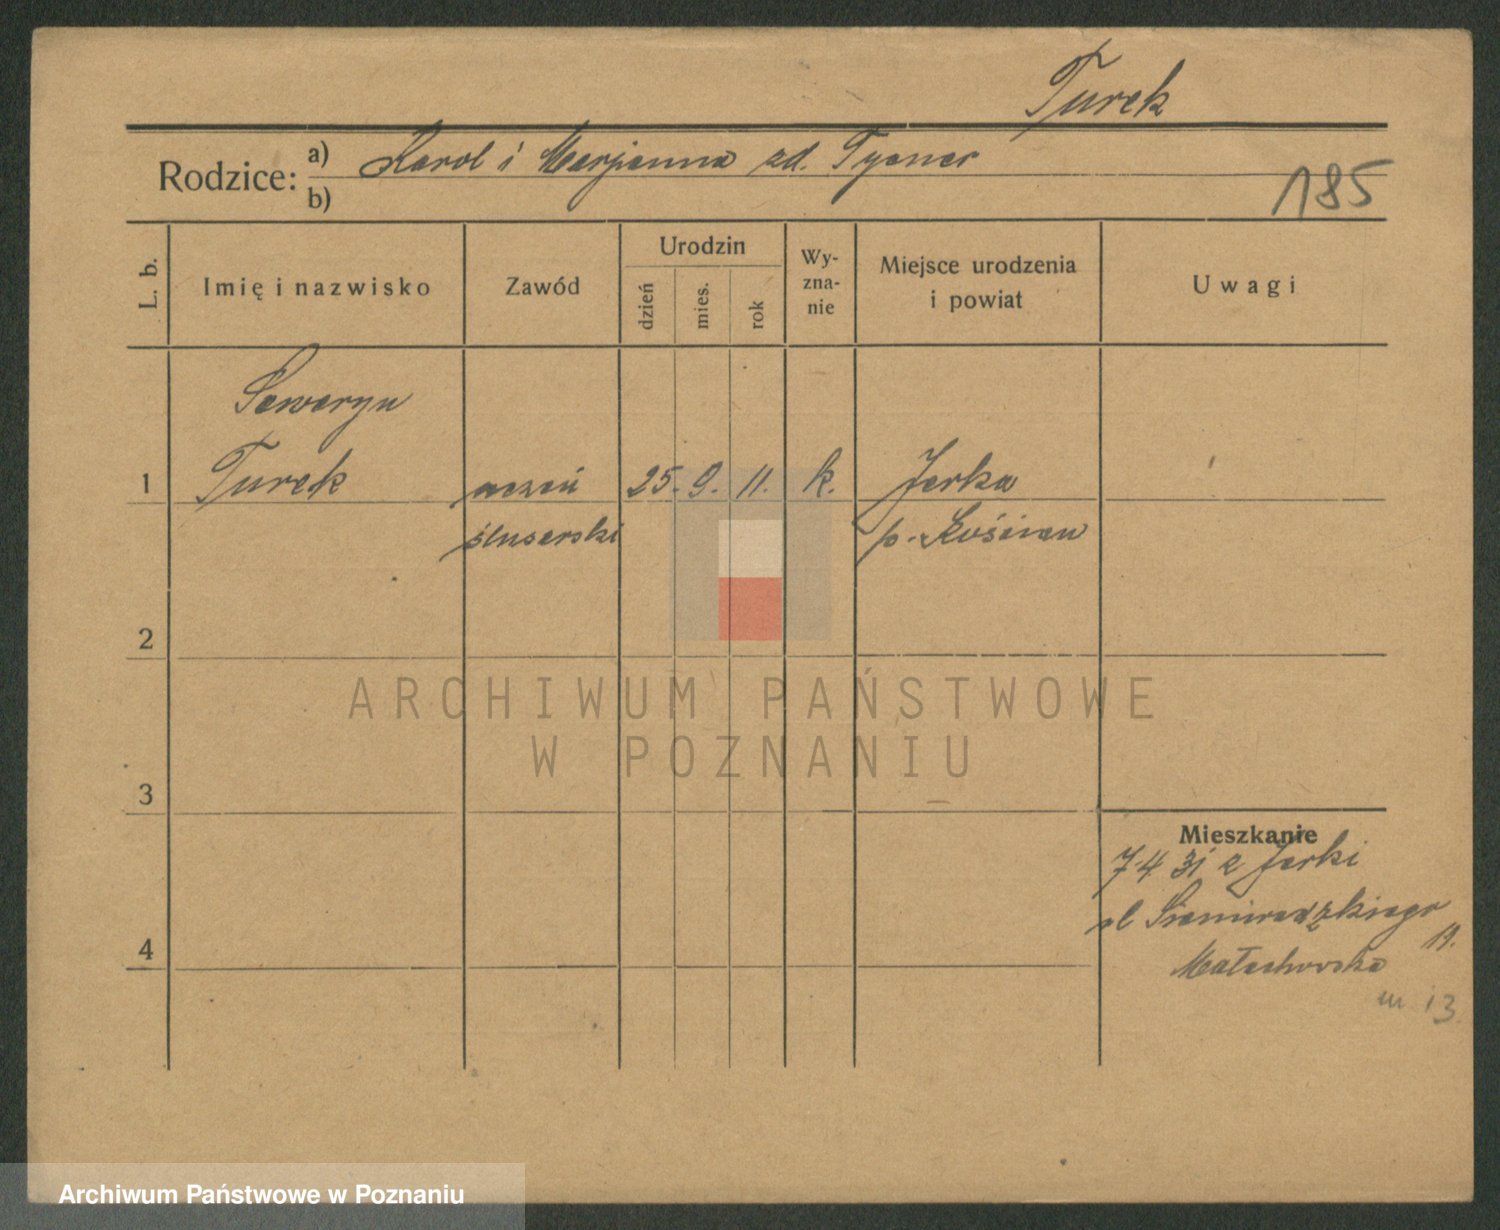 Turek
Rodzice: a) Karol i Marjanna zd. Tycner
b)
185
L. b.
Imię i nazwisko
Zawód
Urodzin
dzień
mies.
rok
Wy-
zna-
nie
Miejsce urodzenia
i powiat
Uwagi
Seweryn
1 Turek uczeń 25. 9. 11. k. Jerka
ślusarski p. Kościan
2
ARCHIWUM PAŃSTWOWE
W POZNANIU
3
Mieszkanie
7.4 31 z Jerki
ul Siemiradzkiego
11.
4
Małachowska
m 13
Archiwum Państwowe w Poznaniu